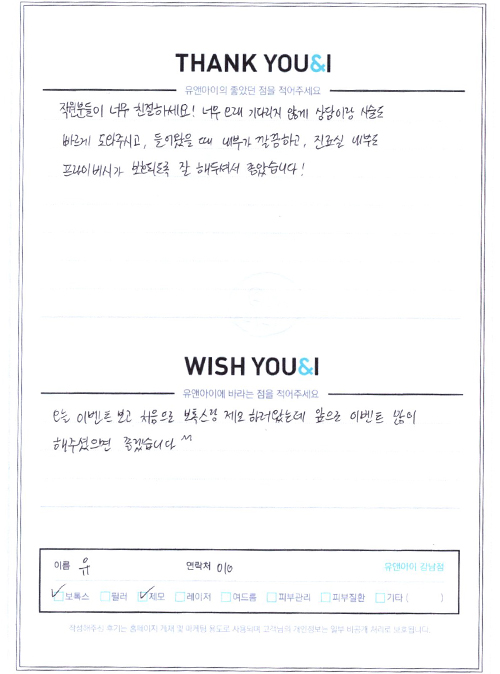 THANK YOU&I
유앤아이의 좋았던 점을 적어주세요
직원분들이 너무 친절하세요! 너무 오래 기다리지 않게 상담이랑 시술도
빠르게 도와주시고, 들어왔을 때 내부가 깔끔하고, 진료실 내부도
프라이버시가 보호되도록 잘 해두셔서 좋았습니다!
WISH YOU&I
유앤아이에 바라는 점을 적어주세요
오늘 이벤트 보고 처음으로 보톡스랑 제모 하러왔는데 앞으로 이벤트 많이
해주셨으면 좋겠습니다^^
이름 유 연락처 010 유앤아이 강남점
보톡스 필러 제모 레이저 여드름 피부관리 피부질환 기타 ( )
작성해주신 후기는 홈페이지 게재 및 마케팅 용도로 사용되며 고객님의 개인정보는 일부 비공개 처리로 보호됩니다.